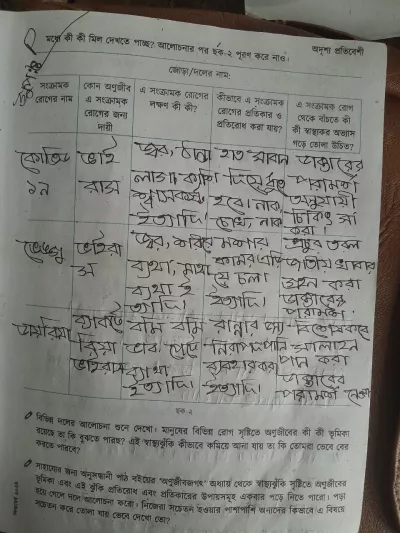 মধ্যে কী কী মিল দেখতে পাচ্ছ? আলোচনার পর ছক-২ পূরণ করে নাও।
অদৃশ্য প্রতিবেশী
জোড়া/দলের নাম:
সংক্রামক রোগের নাম
কোন অণুজীব এ সংক্রামক রোগের জন্য দায়ী
এ সংক্রামক রোগের লক্ষণ কী কী?
কীভাবে এ সংক্রামক রোগের প্রতিকার ও প্রতিরোধ করা যায়?
এ সংক্রামক রোগ থেকে বাঁচতে কী কী স্বাস্থ্যকর অভ্যাস গড়ে তোলা উচিত?
কোভিড
১৯
ভাই
রাস
জ্বর, ঠান্ডা
লাগা
শ্বাসকষ্ট
ইত্যাদি
হাত সাবান
দিয়ে ধুতে
হবে। নাক
চোখ, নাক
ডাক্তারের
পরামর্শ
অনুযায়ী
চিকিৎসা
করা।
ডেঙ্গু
ভাইরা
স
জ্বর, শরীর
ব্যথা, মাথা
ব্যথা ই
ত্যাদি।
মশার
কামড় এড়ি
য়ে চলা
ইত্যাদি।
প্রচুর তরল
জাতীয় খাবার
গ্রহন করা
ডাক্তারের
পরামর্শ।
ডায়রিয়া
ব্যাকটে
রিয়া
ভাইরাস
বমি বমি
ভাব, পেটে
ব্যথা
ইত্যাদি।
নিরাপদ পানি
ব্যবহার করা
ইত্যাদি।
স্যালাইন
পান করা
ডাক্তারের
পরামর্শ নেওয়া
ছক-২
বিভিন্ন দলের আলোচনা শুনে দেখো। মানুষের বিভিন্ন রোগ সৃষ্টিতে অণুজীবের কী কী ভূমিকা
রয়েছে তা কি বুঝতে পারছ? এই স্বাস্থ্যঝুঁকি কীভাবে কমিয়ে আনা যায় তা কি তোমরা ভেবে বের
করতে পারবে?
সাহায্যের জন্য অনুসন্ধানী পাঠ বইয়ের 'অণুজীবজগৎ' অধ্যায় থেকে স্বাস্থ্যঝুঁকি সৃষ্টিতে অণুজীবের
ভূমিকা এবং এই ঝুঁকি প্রতিরোধ এবং প্রতিকারের উপায়সমূহ একবার পড়ে নিতে পারো। পড়া
হয়ে গেলে দলে আলোচনা করো। নিজেরা সচেতন হওয়ার পাশাপাশি অন্যদের কিভাবে এ বিষয়ে
সচেতন করে তোলা যায় ভেবে দেখো তো?